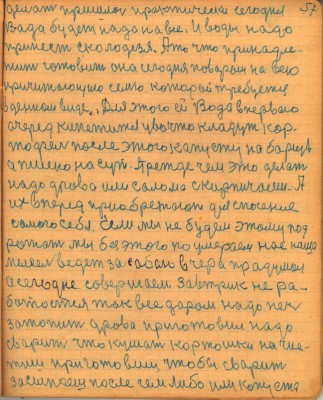 делат пришлос практически сегодня 57
Вада будет нада на вче. И воды надо
принест с колодезя. А то что принадле-
жит готовит она сегодня поварам на всю
причитающую семю который требуется
в денном виде. Для этого ей Вода в первою
очеред кипетит в что кладут кар-
тофел после этого капусту на барщ
а пшено на суп. Прежде чем это делат
надо дрова или салома с кирпичами. А
их вперед приобретают для спасение
самого себя. Если мы не будем этому
ратат мы без этого по умераем нас наша
ведет за сабою вчера придумал
а сегодне совершаем. Завтрик не ра-
ботоется так все даром надо печ
затопит дрова приготовит надо
сварит что кушат картошки начис-
тит приготовит чтобы сварит
после чем либо или капуста